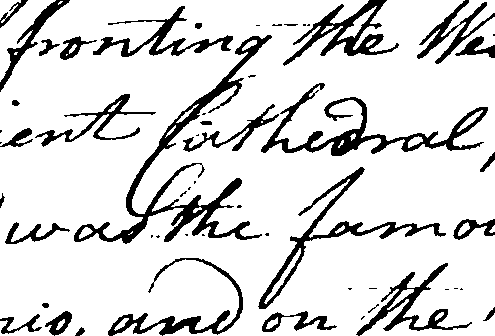 fronting the We
ient Cathedral,
was the famou
rio, and on the